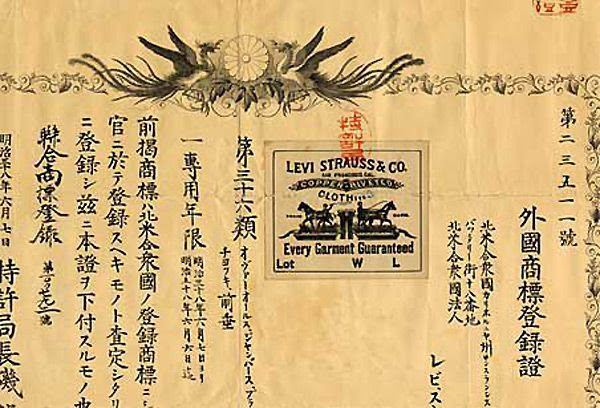 第二三五一一號
外國商標登録證
北米合衆國カリホルニヤ州サンフランシス
バッテリー街十八番地
北米合衆國法人
レビ、ス
LEVI STRAUSS & CO.
SAN FRANCISCO, CAL.
COPPER RIVETED
CLOTHING
TRADE MARK
Every Garment Guaranteed
Lot W L
第三十六類
オヴァーオールス、ジャンパース、ブラ
チヨツキ、前垂
一專用年限
八年六月七日ヨリ
八年六月六日迄
前掲商標ハ北米合衆國ノ登録商標ニシ
官ニ於テ登録スヘキモノト査定シタリ
ニ登録シ茲ニ本證ヲ下付スルモノ也
聯合商標登録
明治卅八年六月七日
特許局長